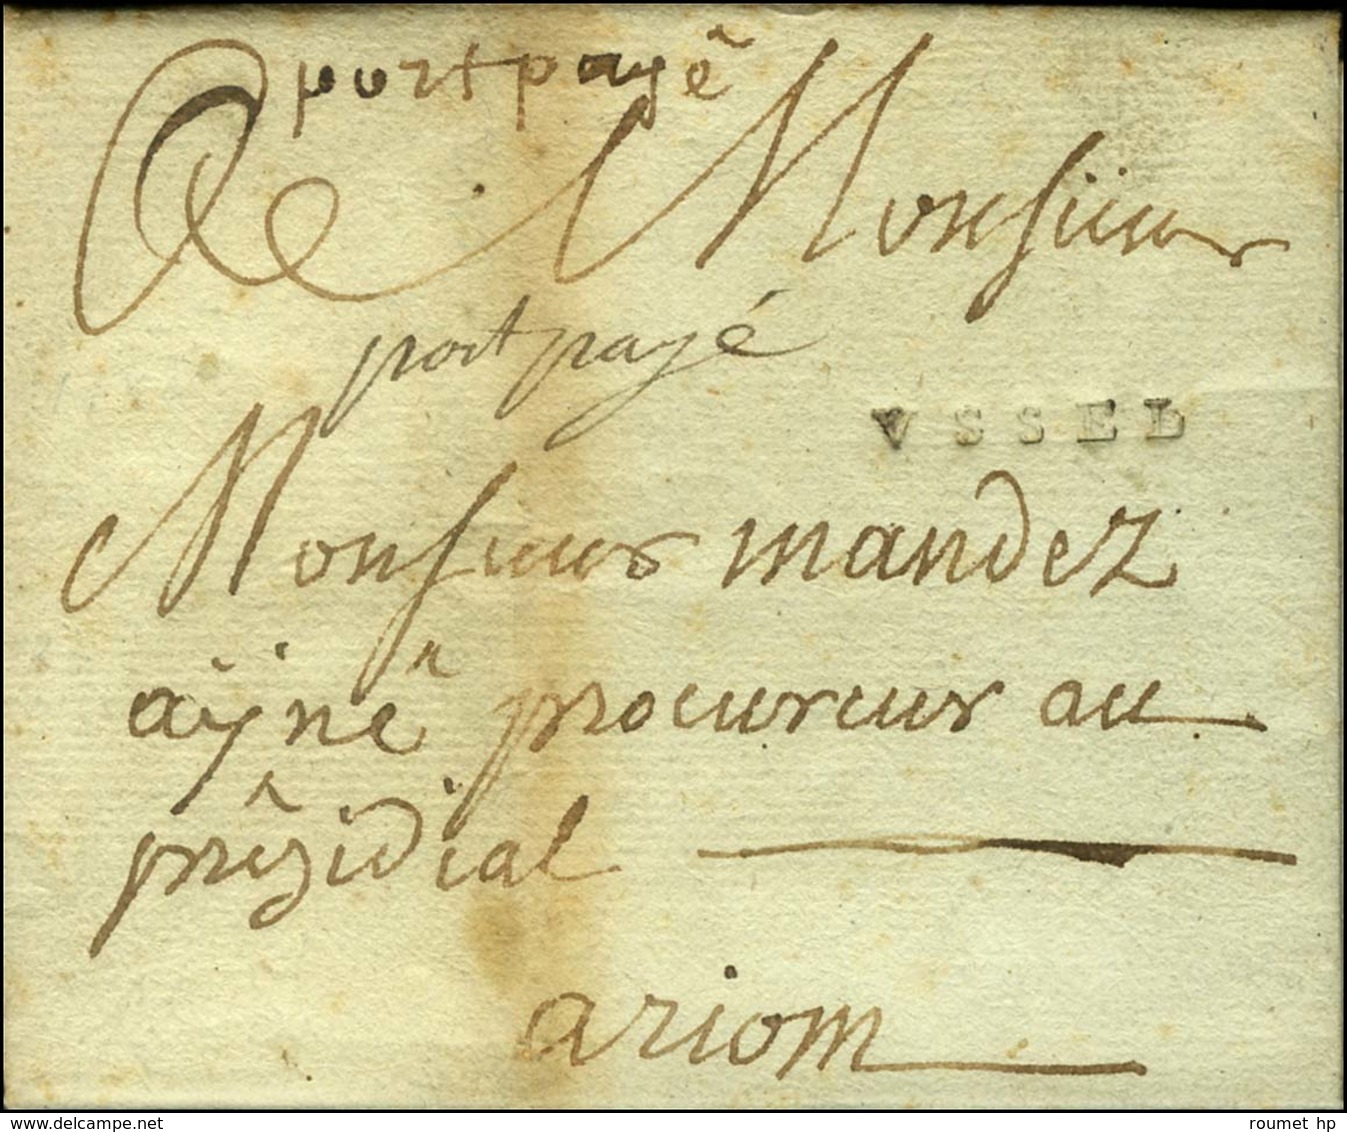 port payé
A Monsieur
port payé
VSSEL
Monsieur mandez
aÿné procureur au
prêzidial
a riom
roumet hp